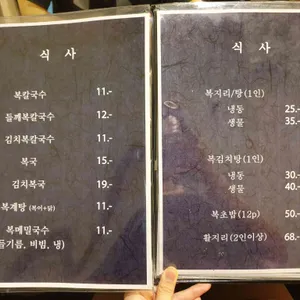 식 사
복칼국수 11.-
들깨복칼국수 12.-
김치복칼국수 11.-
복국 15.-
김치복국 19.-
복계탕 (복어+닭) 11.-
복메밀국수 11.-
들기름, 비빔, 냉)
식 사
복지리/탕(1인)
냉동 25.-
생물 35.-
복김치탕(1인)
냉동 30.-
생물 40.-
복초밥(12p) 50.-
활지리(2인이상) 68.-